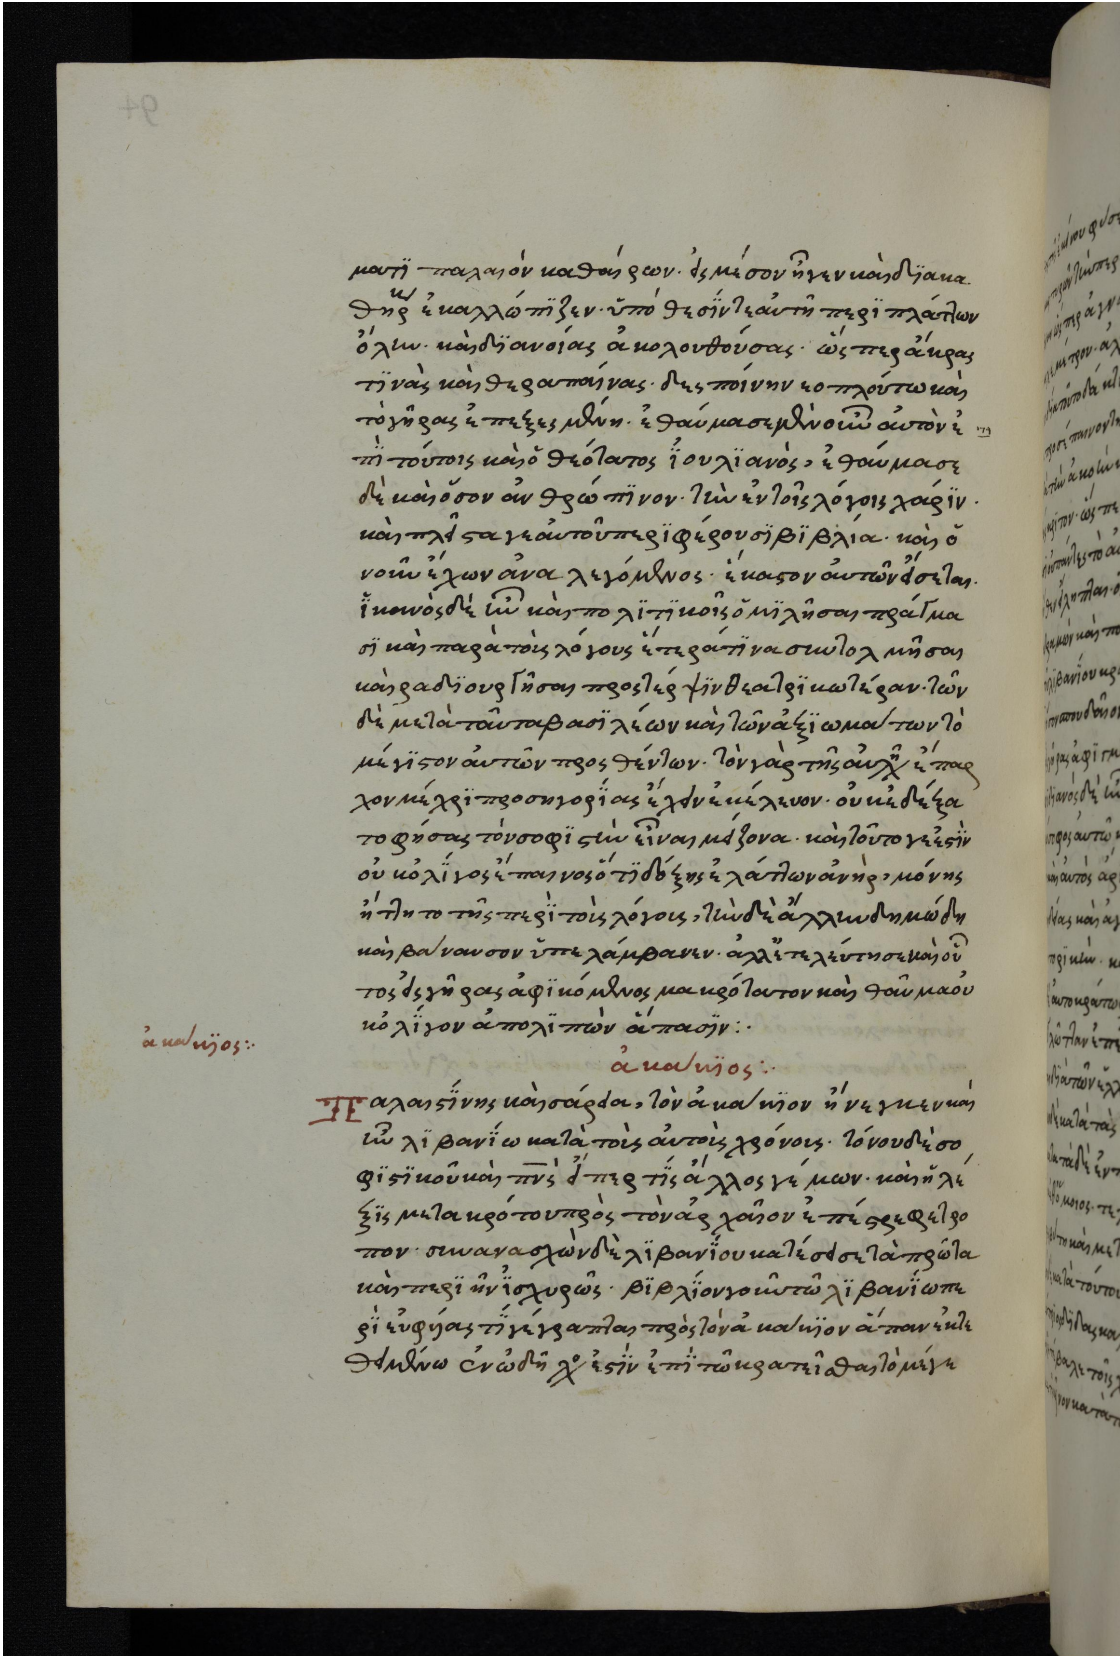 ματι παλαιὸν καθαίρων· εἰς μέσον ἦγεν καὶ διακα
θήρ κ(αὶ) ἐκαλλώπιζεν· ὑπόθεσίν τε αὐτῆ περιπλάττων
ὅλην· καὶ διανοίας ἀκολουθούσας· ὥσπερ ἄκρας
τινὰς καὶ θεραπαίνας· δεσποίνῃ νεοπλούτω καὶ
τὸ γῆρας ἐπεξεσμένη· ἐθαύμασε μὲν οὖν αὐτὸν ἐ
πὶ τούτοις καὶ ὁ θεότατος ἰουλιανὸς, ἐθαύμασε
δὲ καὶ ὅσον ἀνθρώπινον· τὴν ἐν τοῖς λόγοις χάριν·
καὶ πλεῖστά γε αὐτοῦ περιφέρουσι βιβλία· καὶ ὁ
νοῦν ἔχων ἀναλεγόμενος· ἕκαστον αὐτῶν εἴσεται·
ἱκανὸς δὲ ἦν καὶ πολιτικοῖς ὁμιλῆσαι πράγμα
σι καὶ παρὰ τοὺς λόγους ἕτερά τινα συντολμῆσαι
καὶ ραδιουργῆσαι πρὸς τέρψιν θεατρικωτέραν· τῶν
δὲ μετὰ ταῦτα βασιλέων καὶ τῶν ἀξιωμάτων τὸ
μέγιστον αὐτῶν προσθέντων· τὸν γὰρ τῆς αὐλῆς ἔπαρ
χον μέχρι προσηγορίας ἔχειν ἐκέλευον· οὐκ ἐδέξα
το φήσας τὸν σοφιστὴν εἶναι μείζονα· καὶ τοῦτό γε ἐστὶν
οὐκ ὀλίγος ἔπαινος ὅτι δόξης ἐλάττων ἀνὴρ, μόνης
ἥττητο τῆς περὶ τοὺς λόγοις, τὴν δὲ ἄλλην δημώδη
καὶ βάναυσον ὑπελάμβανεν· ἀλλ' ἐτελεύτησε καὶ οὗ
τος εἰς γῆρας ἀφικόμενος μακρότατον καὶ θαῦμα οὐ
κ ὀλίγον ἀπολιπὼν ἅπασιν:·
ἀκάκιος:·
ἀκάκιος:·
Παλαιστίνης καισάρεια, τὸν ἀκάκιον ἤνεγκεν καὶ
ἦν λιβανίω κατὰ τοὺς αὐτοὺς χρόνους· τόνου δὲ σο
φιστικοῦ καὶ πν(εύματο)ς εἴπερ τὶς ἄλλος γέμων· καὶ ἡ λέ
ξις μετὰ κρότου πρὸς τὸν ἀρχαῖον ἐπέστρεφε τρό
πον· συνανασχὼν δὲ λιβανίου κατέσεισε τὰ πρῶτα
καὶ περιῆν ἰσχυρῶς· βιβλίον γοῦν τῶ λιβανίω πε
ρὶ εὐφυΐας τὶ γέγραπται πρὸς τὸν ἀκάκιον ἅπαν ἐκτε
θειμένω ἐν ὧ δῆλός ἐστιν ἐπὶ τῶ κρατεῖσθαι τὸ μέγε